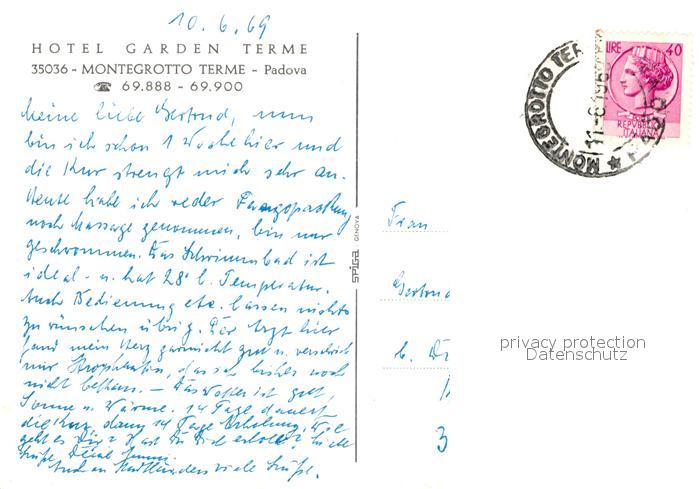 10.6.69
HOTEL GARDEN TERME
35036 - MONTEGROTTO TERME - Padova
☎ 69.888 - 69.900
Meine liebe Gertrud, nun
bin ich schon 1 Woche hier und
die Kur strengt mich sehr an.
Heute habe ich weder Fangopackung
noch Massage genommen, bin nur
geschwommen. Das Schwimmbad ist
ideal - u. hat 28° C. Temperatur.
Auch Bedienung etc. lassen nichts
zu wünschen übrig. Der Arzt hier
fand mein Herz garnicht gut u. verschrieb
mir Strophantin, das ich bisher noch
nicht bekam. — Das Wetter ist gut,
Sonne u. Wärme. 14 Tage dauert
die Kur, dann 14 Tage Erholung. Wie
geht es Dir? Hast Du Dich erholt?
Grüße Deine
Auch an viele Grüße.
SPIGA GENOVA
Frau
Gertrud
3
MONTEGROTTO TER
11-6-196
LIRE 40
REPUBBLICA
ITALIANA
privacy protection
Datenschutz